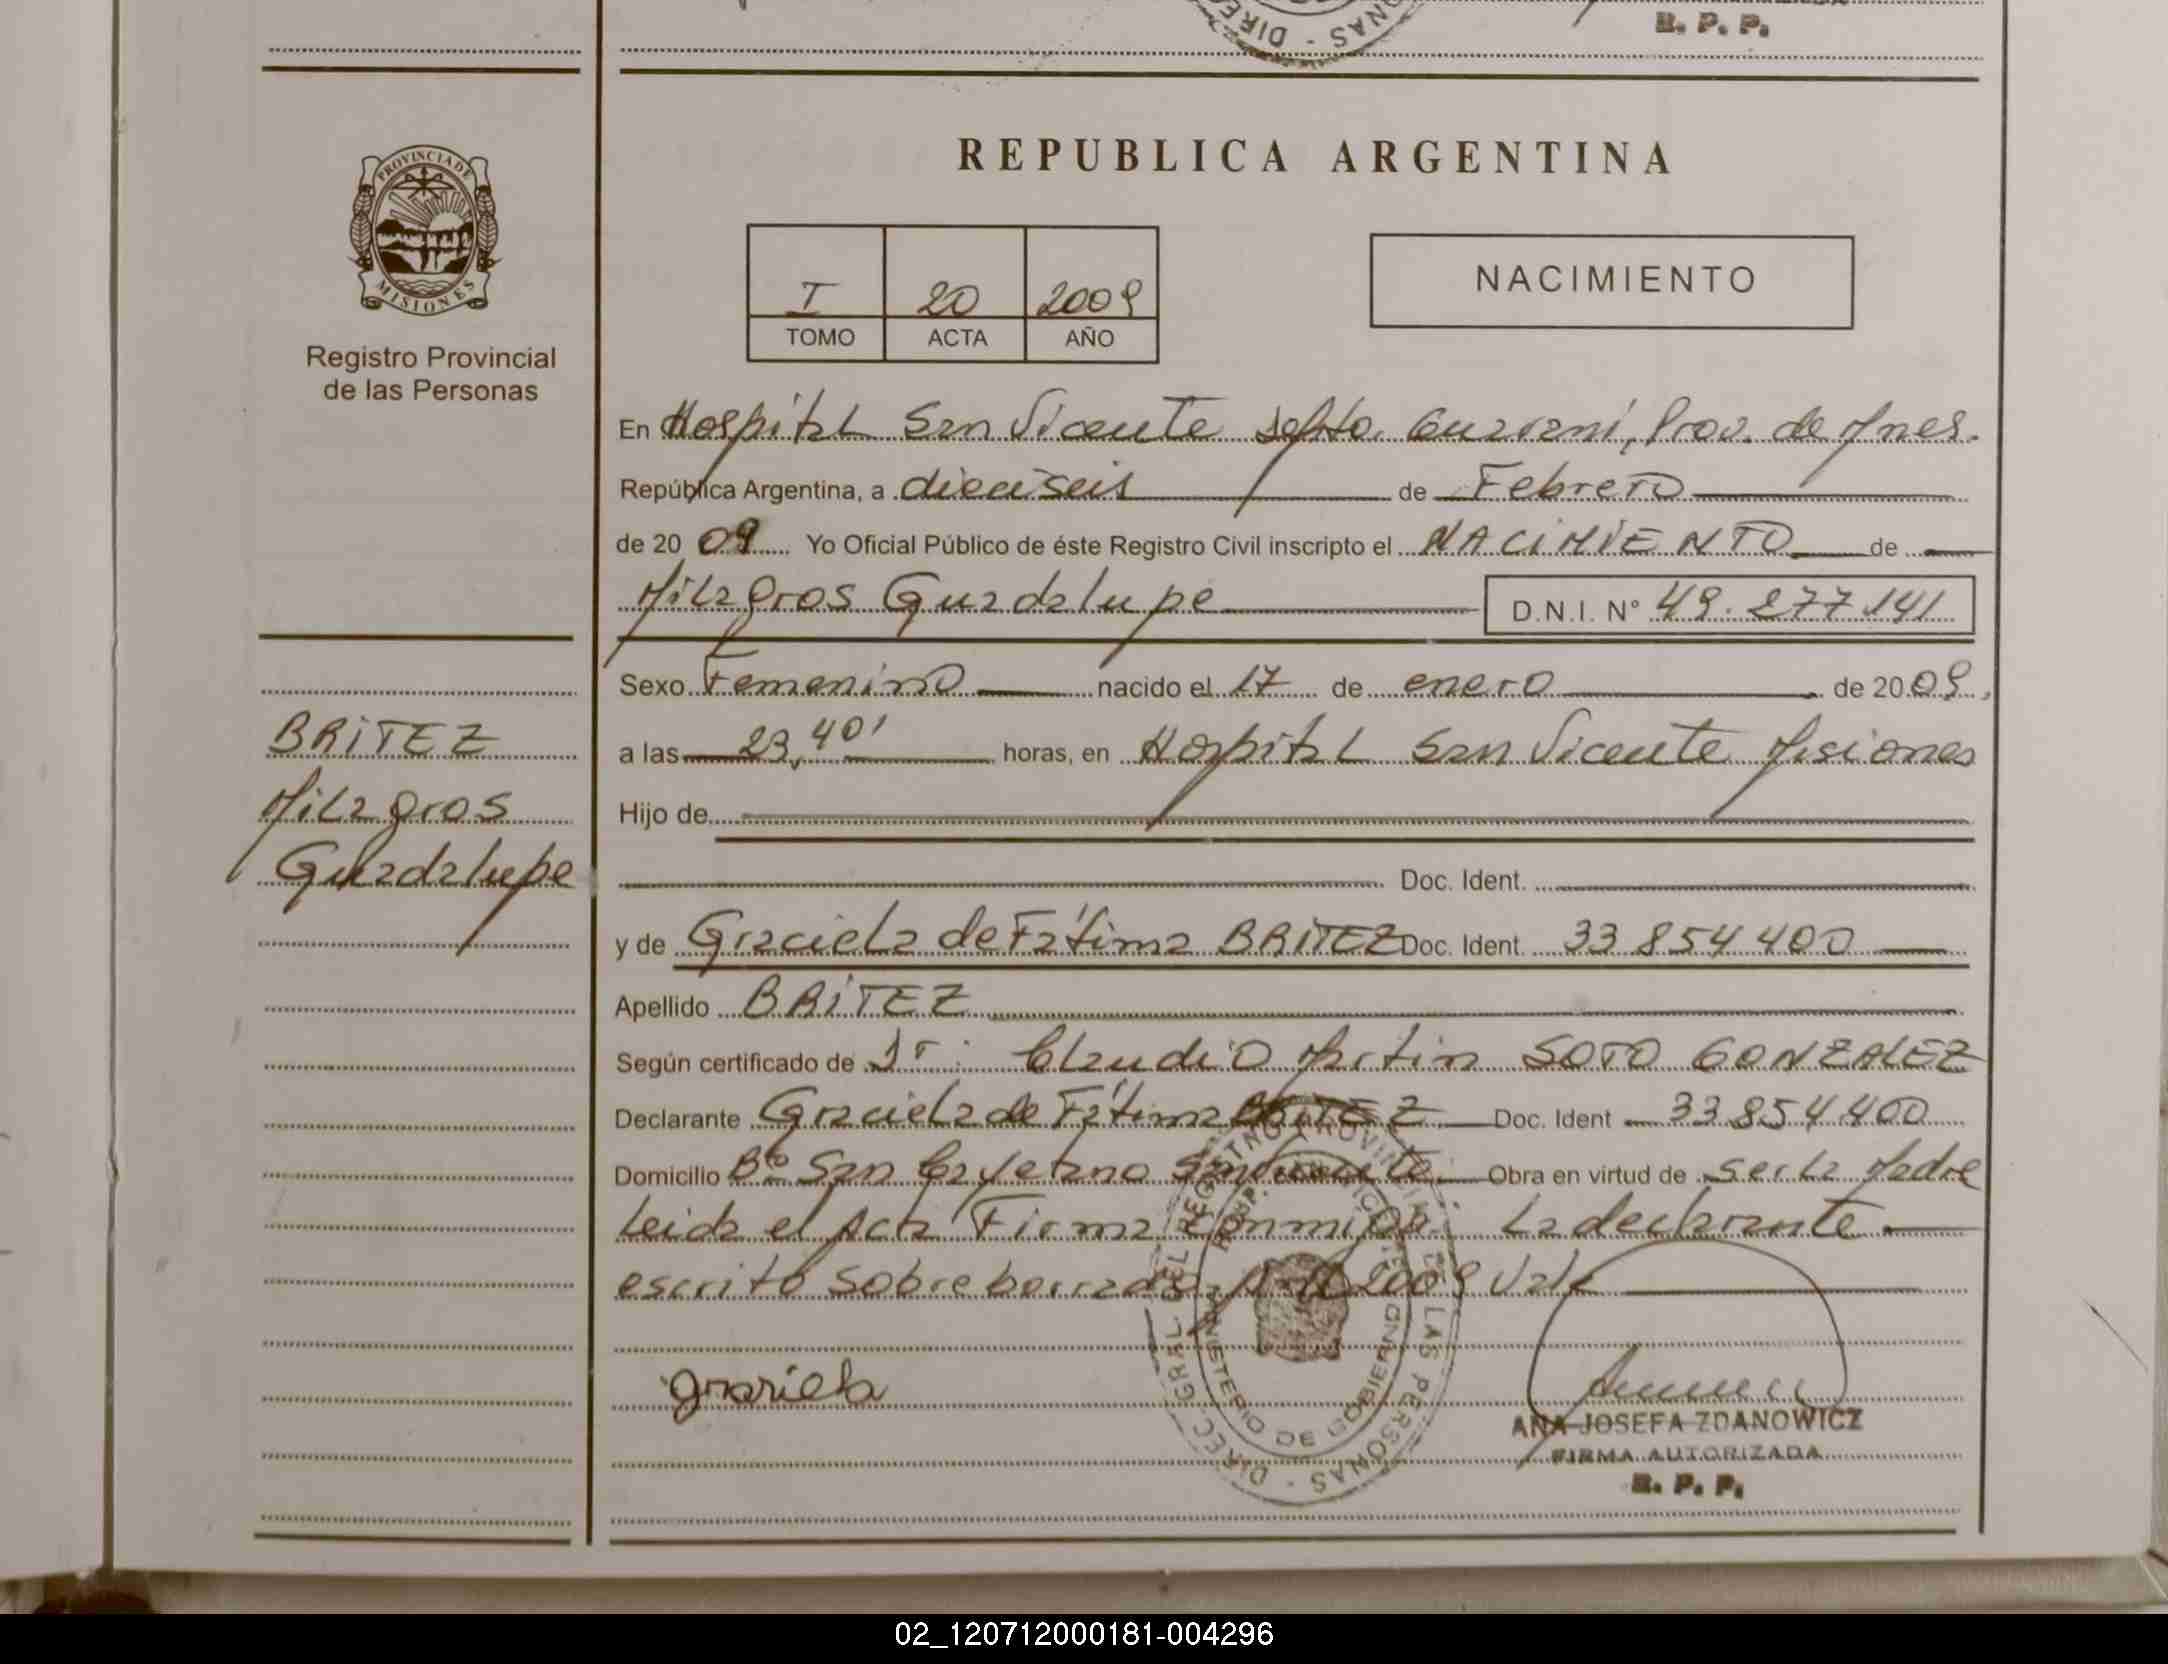 R. P. P.
DIREC - SONAS
PROVINCIA DE
MISIONES
Registro Provincial
de las Personas
BRITEZ
Milagros
Guadalupe
REPUBLICA ARGENTINA
I 20 2009
TOMO ACTA AÑO
NACIMIENTO
En Hospital San Vicente Dpto. Guaraní, Prov. de Mnes.
República Argentina, a dieciseis de Febrero
de 20 09 Yo Oficial Público de éste Registro Civil inscripto el NACIMIENTO de
Milagros Guadalupe D.N.I. N° 49.277.141
Sexo Femenino nacido el 17 de enero de 20 09
a las 23,40' horas, en Hospital San Vicente Misiones
Hijo de
Doc. Ident.
y de Graciela de Fátima BRITEZ Doc. Ident. 33 854 400
Apellido BRITEZ
Según certificado de Claudio Martin SOTO GONZALEZ
Declarante Graciela de Fátima BRITEZ Doc. Ident 33 854 400
Domicilio B° San Cayetano San Vicente Obra en virtud de ser la Madre
Leida el Acta Firma Conmigo La declarante
escrito sobre borrado 2009 Vale
graciela
DIREC. GRAL. DEL REGISTRO PROVINCIAL DE LAS PERSONAS
MINISTERIO DE GOBIERNO
ANA JOSEFA ZDANOWICZ
FIRMA AUTORIZADA
R. P. P.
02_120712000181-004296